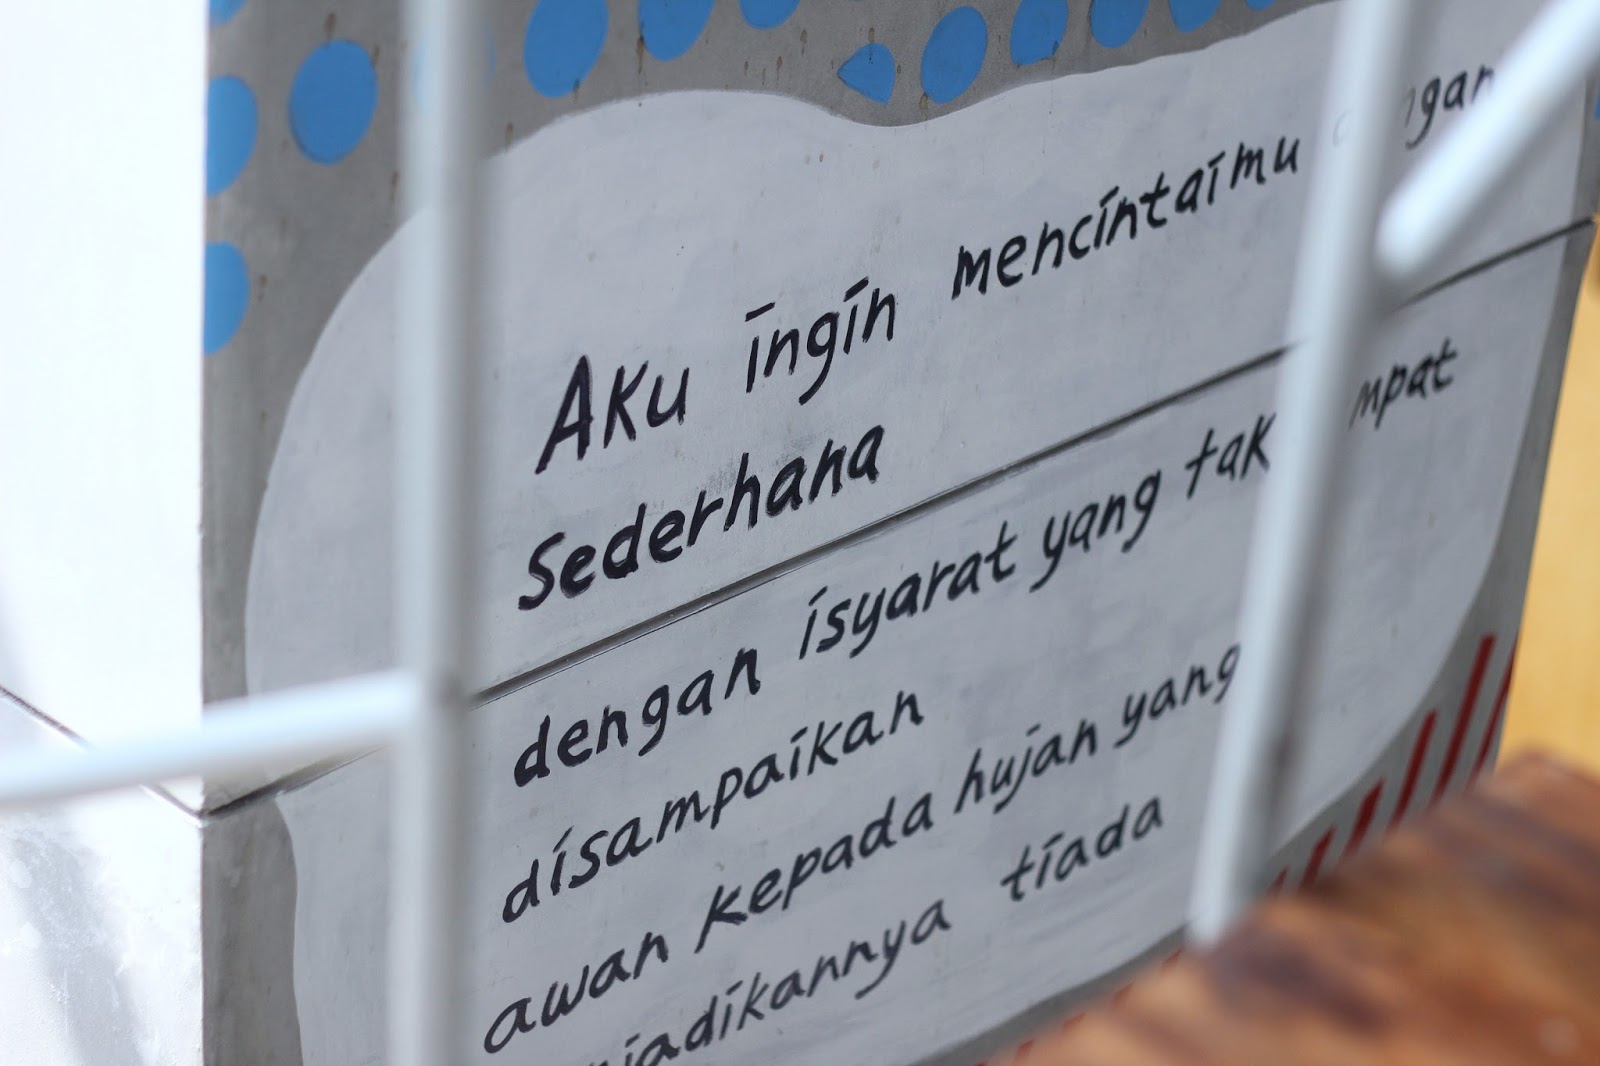 Aku ingin mencintaimu
Sederhana
dengan isyarat yang tak
disampaikan
awan kepada hujan yang
tiada